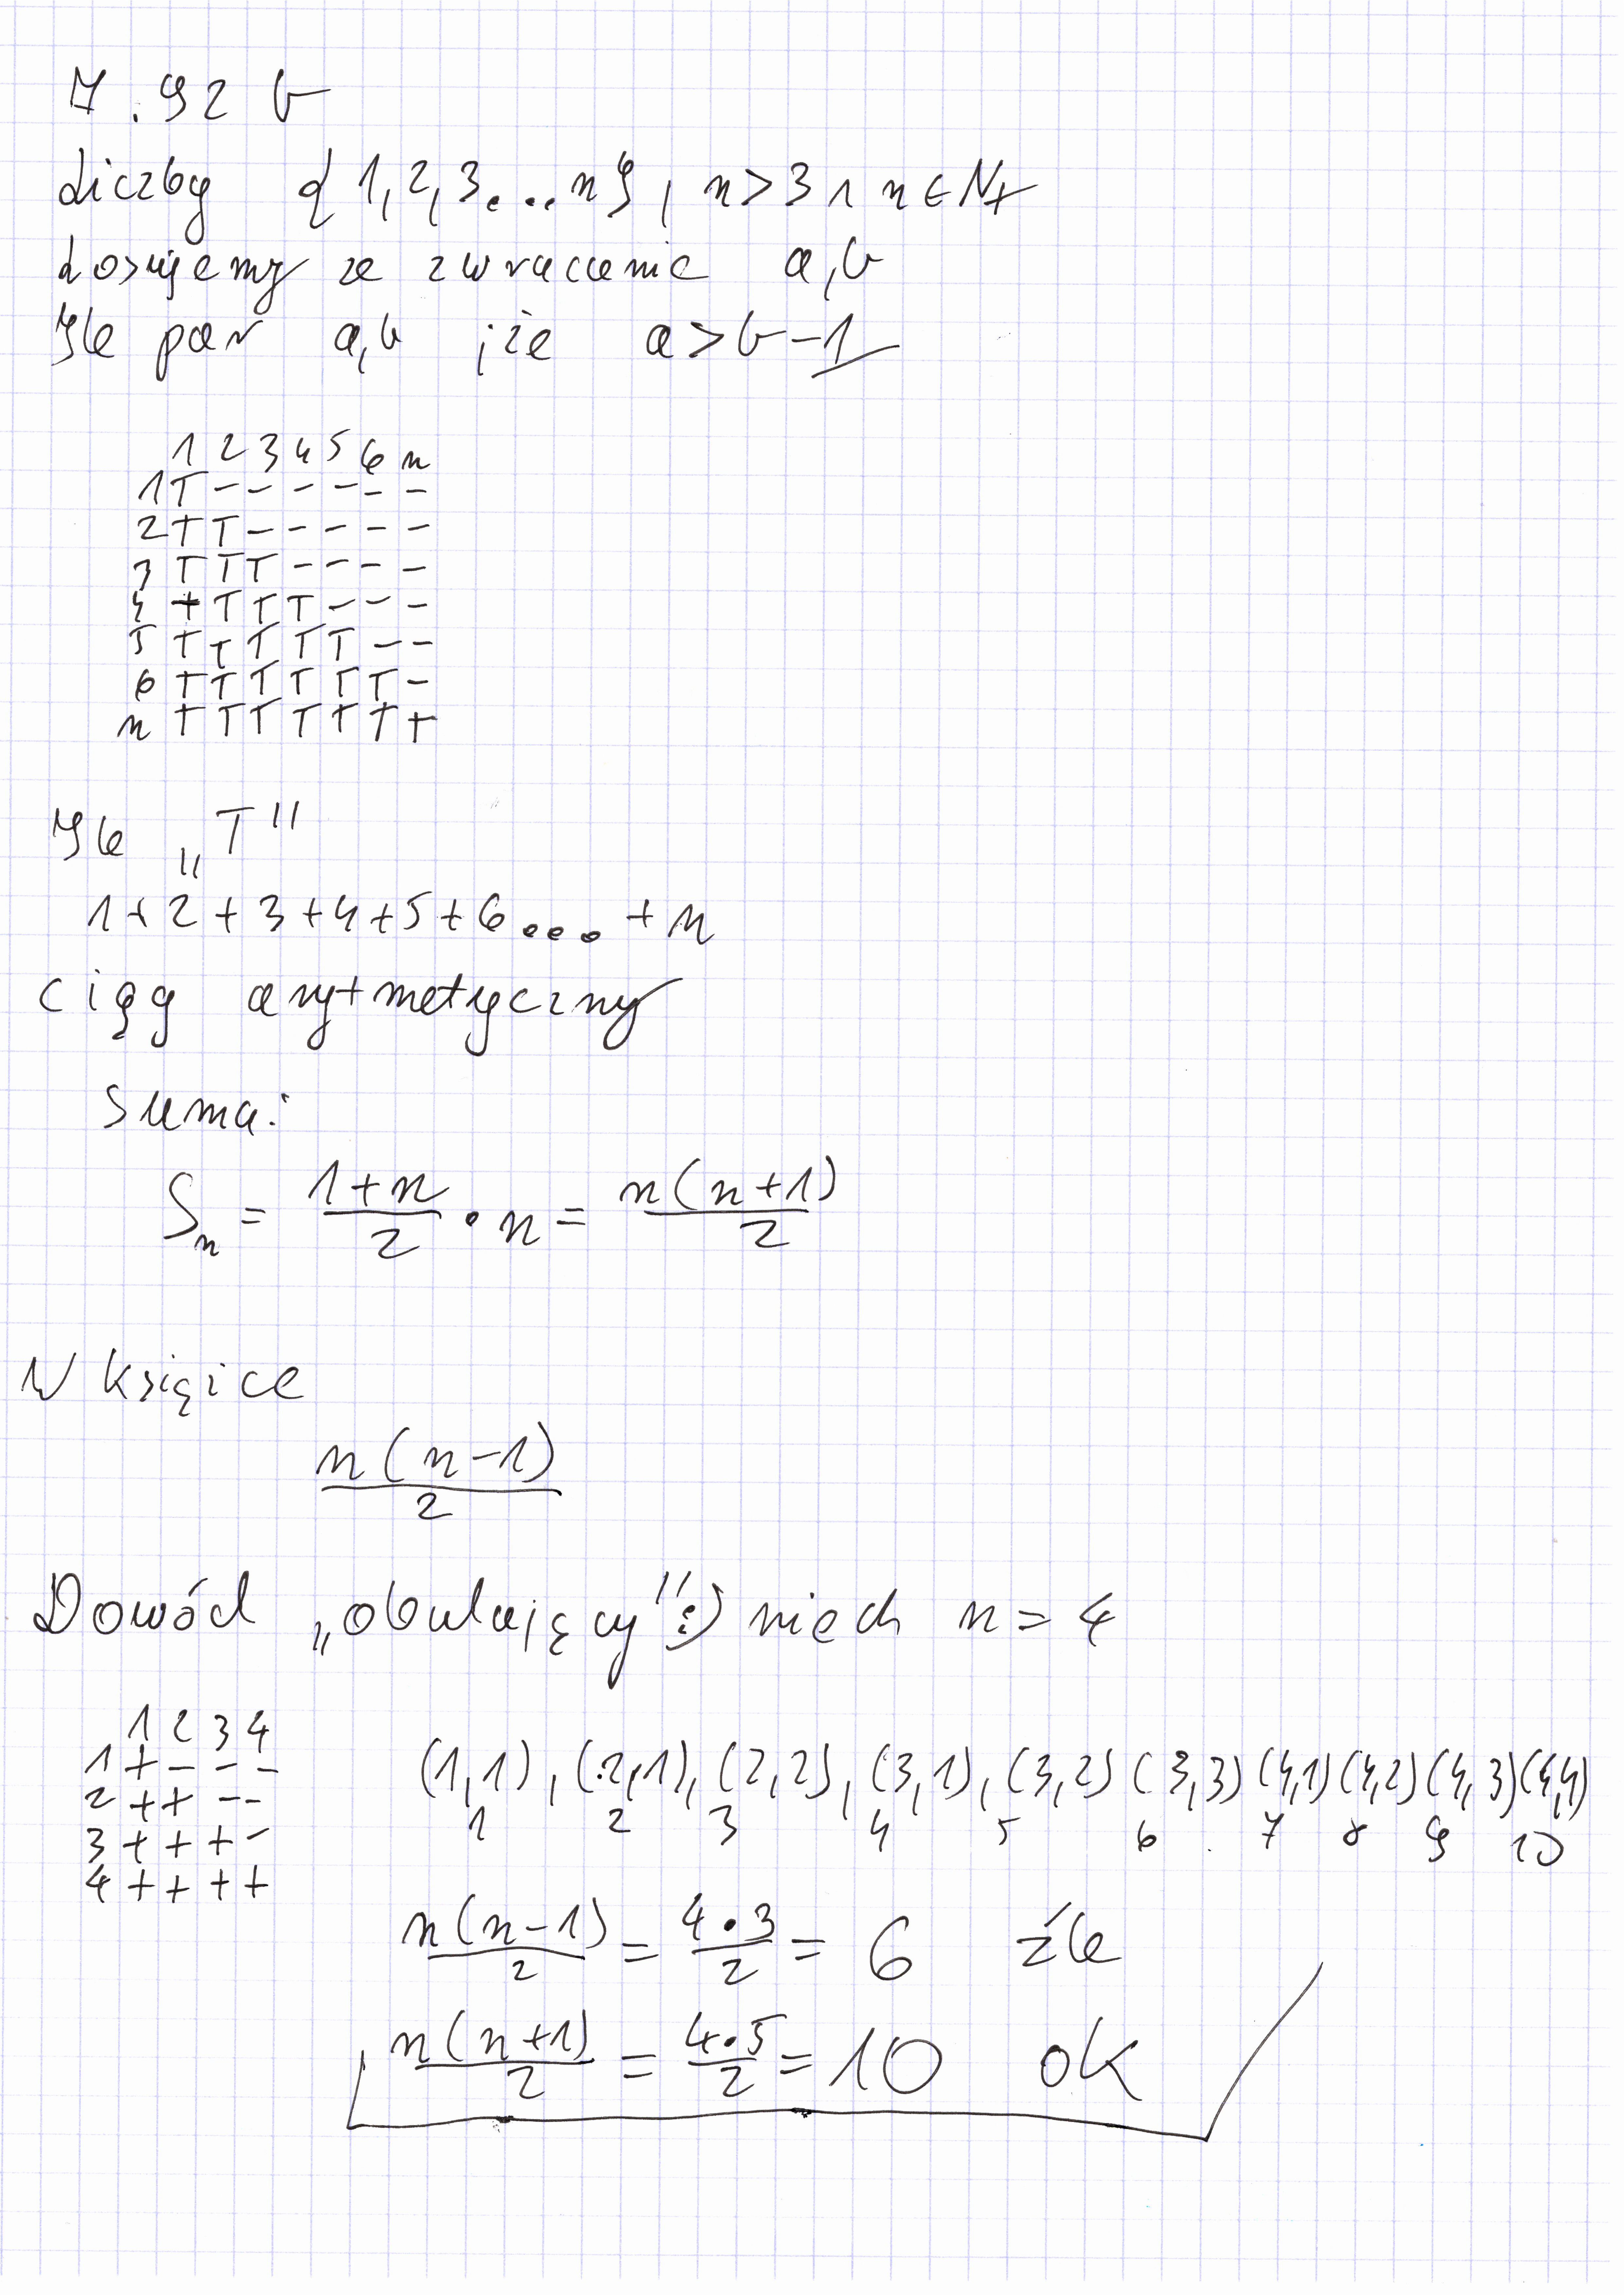 7.92 b
Liczby {1,2,3...n}, n>3 ∧ n∈N+
Losujemy ze zwracanie a,b
Ile par a,b, że a>b-1
1 2 3 4 5 6 n
1 T - - - - - -
2 T T - - - - -
3 T T T - - - -
4 T T T T - - -
5 T T T T T - -
6 T T T T T T -
n T T T T T T T
Ile „T"
1+2+3+4+5+6...+n
ciąg arytmetyczny
Suma:
Sn = (1+n)/2 • n = n(n+1)/2
W książce
n(n-1)/2
Dowód „obulający" :) niech n=4
1 2 3 4
1 + - - -
2 + + - -
3 + + + -
4 + + + +
(1,1), (2,1), (2,2), (3,1), (3,2) (3,3) (4,1) (4,2) (4,3) (4,4)
1 2 3 4 5 6 7 8 9 10
n(n-1)/2 = 4•3/2 = 6 źle
n(n+1)/2 = 4•5/2 = 10 ok